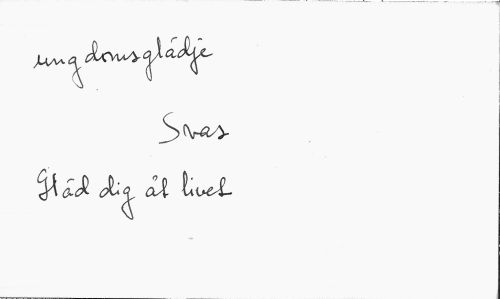 ungdomsglädje
Svas
Gläd dig åt livet